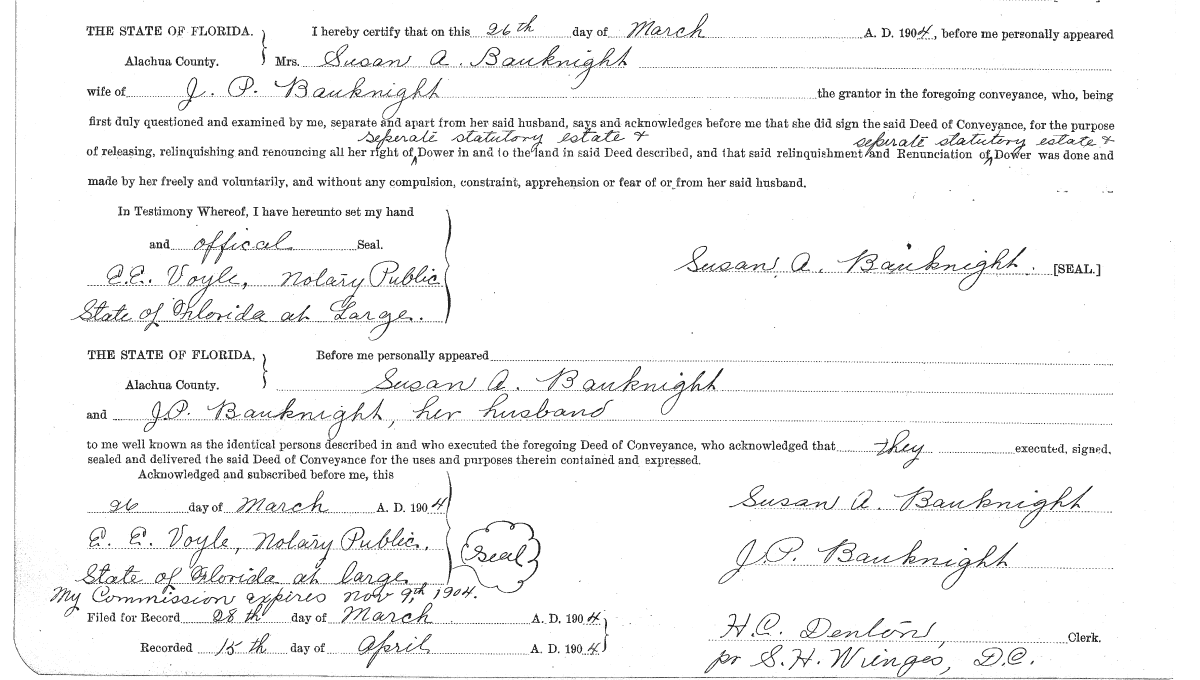 THE STATE OF FLORIDA. I hereby certify that on this 26th day of March A. D. 1904, before me personally appeared
Alachua County. Mrs. Susan A. Bauknight
wife of J. P. Bauknight the grantor in the foregoing conveyance, who, being
first duly questioned and examined by me, separate and apart from her said husband, says and acknowledges before me that she did sign the said Deed of Conveyance, for the purpose
seperate statutory estate & seperate statutory estate &
of releasing, relinquishing and renouncing all her right of Dower in and to the land in said Deed described, and that said relinquishment and Renunciation of Dower was done and
made by her freely and voluntarily, and without any compulsion, constraint, apprehension or fear of or from her said husband.
In Testimony Whereof, I have hereunto set my hand
and offical Seal.
Susan A. Bauknight. [SEAL.]
E.E. Voyle, Notary Public
State of Florida at Large.
THE STATE OF FLORIDA, Before me personally appeared
Alachua County. Susan A. Bauknight
and J.P. Bauknight, her husband
to me well known as the identical persons described in and who executed the foregoing Deed of Conveyance, who acknowledged that they executed, signed,
sealed and delivered the said Deed of Conveyance for the uses and purposes therein contained and expressed.
Acknowledged and subscribed before me, this
26 day of March A. D. 1904
Susan A. Bauknight
E. E. Voyle, Notary Public,
Seal
J.P. Bauknight
State of Florida at large
My Commission expires Nov 9th, 1904.
Filed for Record 28th day of March A. D. 1904
H.C. Denton, Clerk.
Recorded 15th day of April A. D. 1904
pr S.H. Wienges, D.C.